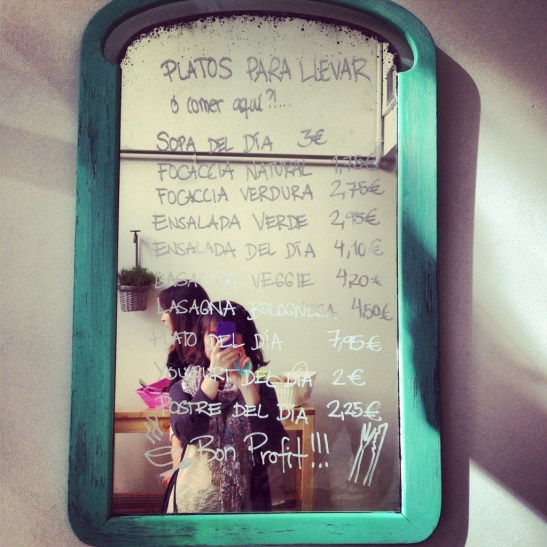 PLATOS PARA LLEVAR
ó comer aquí?!...
SOPA DEL DÍA 3€
FOCACCIA NATURAL 1,75€
FOCACCIA VERDURA 2,75€
ENSALADA VERDE 2,95€
ENSALADA DEL DÍA 4,10€
VEGGIE 4,20€
LASAGNA BOLOGNESA 4,50€
PLATO DEL DÍA 7,95€
YOUGURT DEL DÍA 2€
POSTRE DEL DÍA 2,25€
Bon Profit!!!